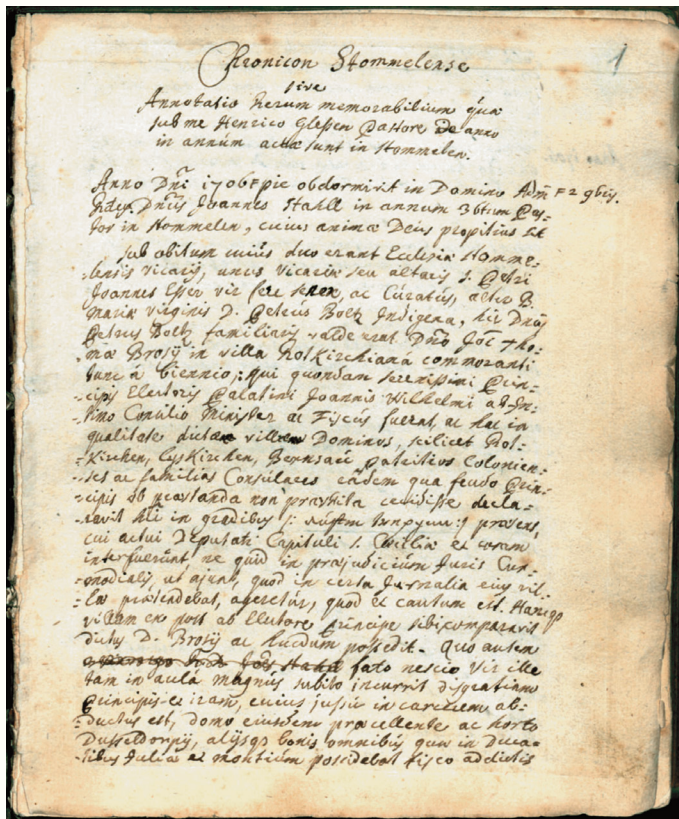 1
Chronicon Stommelense
sive
Annotatio Rerum memorabilium quæ
sub me Henrico Glessen Pastore De anno
in annum acta sunt in Stommelen.
Anno Dni 1706 pie obdormivit in Domino Adm
Rdus Dnus Joannes Stahll in annum Pas-
tor in Stommelen, cuius animæ Deus propitius sit
sub obitum cuius duo erant Ecclesiæ Stomme-
lensis vicarij, unus Vicariæ seu altaris S. Petri
Joannes Esser vir fere senex, ac Curatus, alter B.
Mariæ virginis D. Petrus Boltz Indigena, hic Dnus
Petrus Boltz familiaris valde erat Dno Tho-
mæ Brosij in villa Rolkirchiana commoranti
tunc a biennio, qui quondam serenissimi Prin-
cipis Electoris Palatini Joannis Wilhelmi ab In-
timo Consilio Minister ac Fiscus fuerat, ac hac in
qualitate dictæ villæ Dominos, scilicet Rol-
kirchen, Lyskirchen, Patritios Colonien-
ses ac familias Consulares eadem qua feudo Prin-
cipis ob præstanda non præstita cecidisse decla-
ravit in gradibus
cui actui Deputati Capituli S. Cæciliæ et coram
interfuerunt, ne quid in præjudicium Juris Cur-
modialis, ut ajunt, quod in certa Jurnalia eius vil-
læ prætendebat, ageretur, quod et cautum est. Hancqs
villam en post ab Electore Principe sibi comparavit
dictus D. Brosij ac possedit. Quo autem
fato nescio Vir ille
tam in aula magnus subito incurrit disgratiam
Principis et iram, cuius jussu in carcerem ab-
ductus est, domo eiusdem præcellente ac horto
Dusseldorpij, alijsqs bonis omnibus quæ in Duca-
tibus Juliæ et montium possidebat fisco addictis